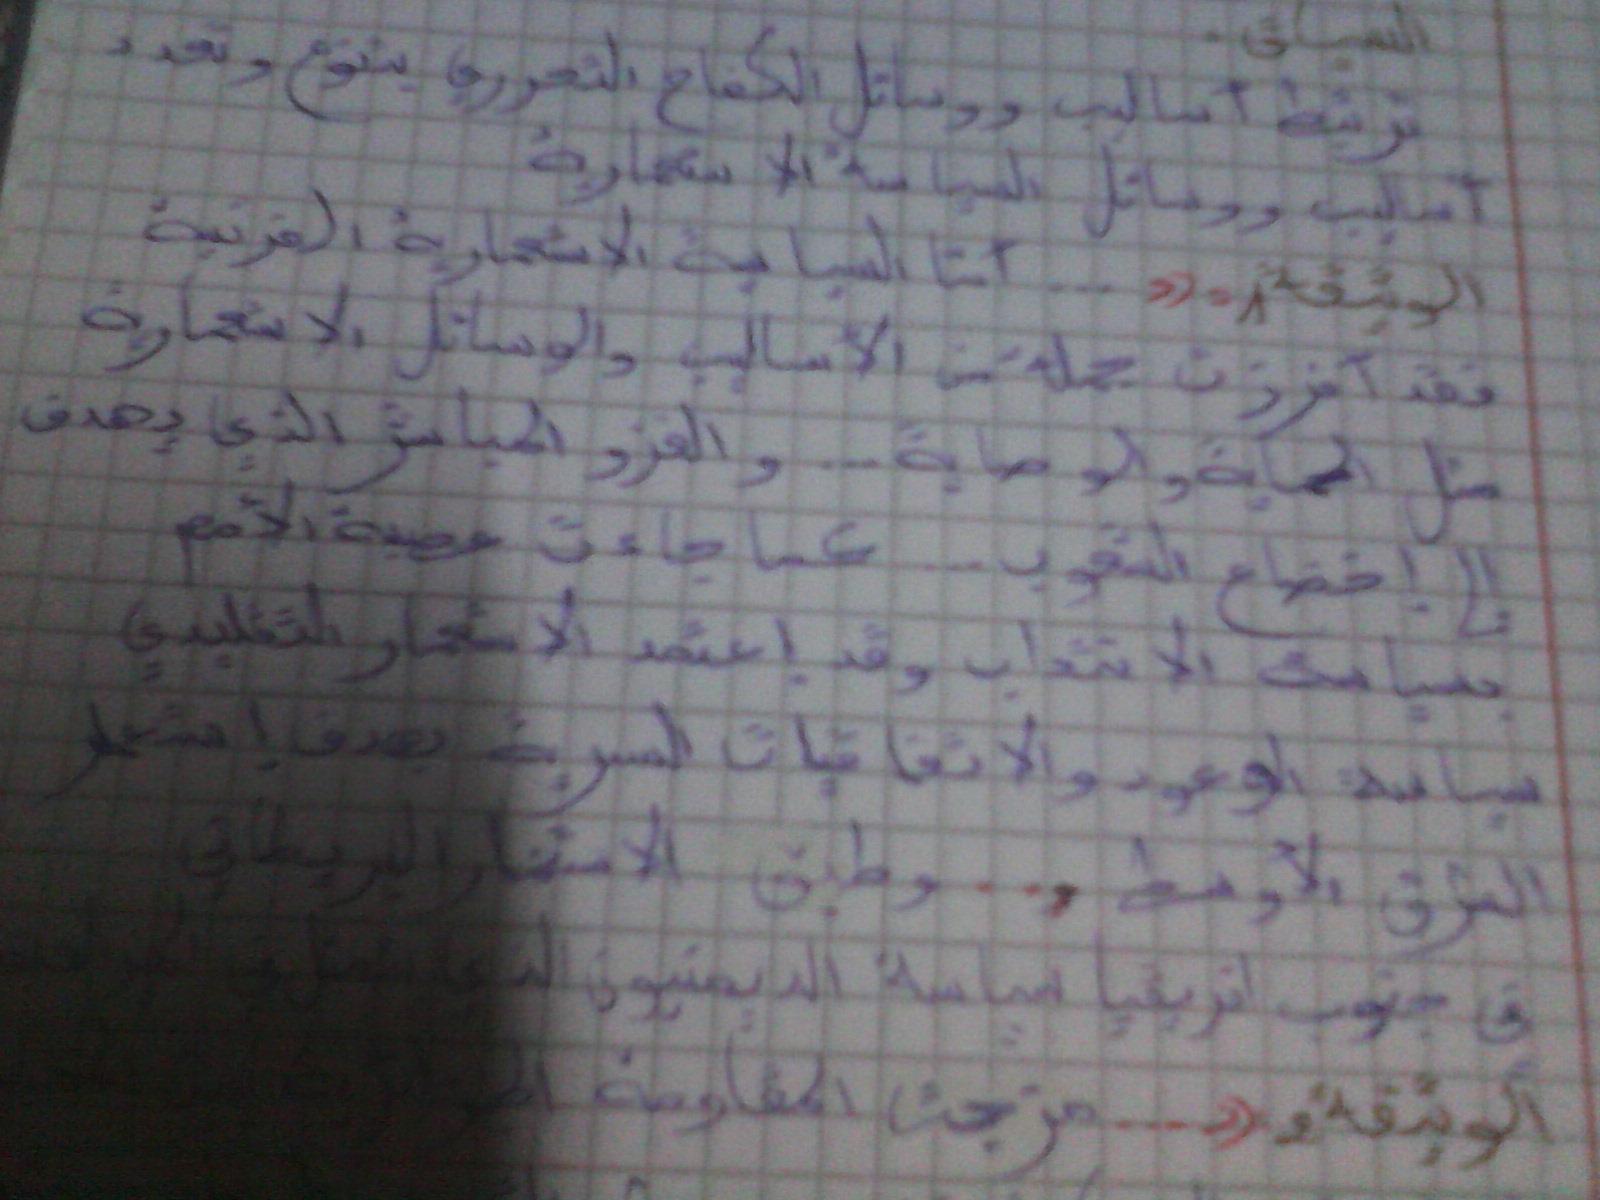 السياق.
ترتبط أساليب ووسائل الكفاح التحرري بتنوع وتعدد
أساليب ووسائل السياسة الاستعمارية
الوثيقة ... أمّا السياسة الاستعمارية الفرنسية
فقد أفرزت جملة من الأساليب والوسائل الاستعمارية
مثل الحماية والوصاية ... والغزو المباشر الذي يهدف
إلى إخضاع الشعوب ... كما جاءت عصبة الأمم
بسياسة الانتداب وقد إعتمد الاستعمار التقليدي
سياسة الوعود والاتفاقيات السرية بهدف إستعمار
الشرق الأوسط و... وطبق الاستعمار البريطاني
في جنوب افريقيا سياسة
الوثيقة ... المقاومة